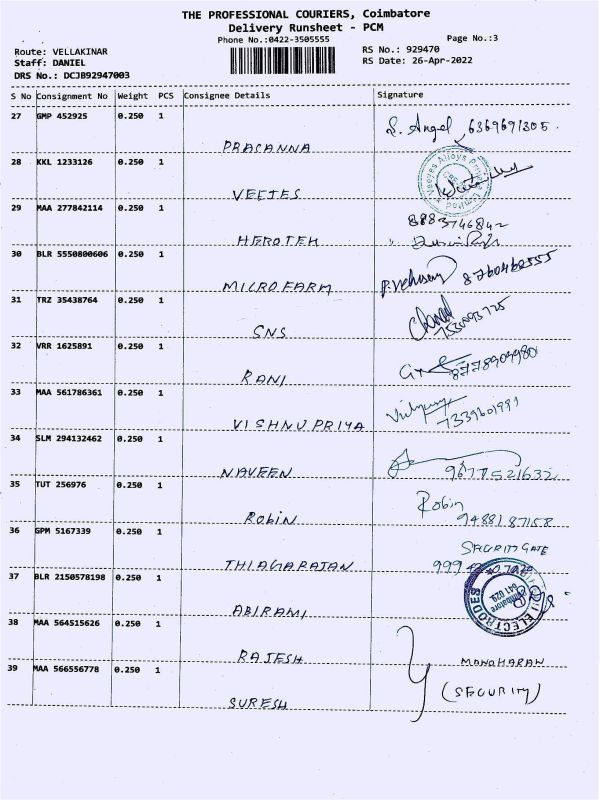 THE PROFESSIONAL COURIERS, Coimbatore
Delivery Runsheet - PCM
Phone No.:0422-3505555 Page No.:3
Route: VELLAKINAR RS No.: 929470
Staff: DANIEL RS Date: 26-Apr-2022
DRS No.: DCJB92947003
S No Consignment No Weight PCS Consignee Details Signature
27 GMP 452925 0.250 1
S. Angel 6369691305.
PRASANNA
28 KKL 1233126 0.250 1
Veeyes Alloys Private Limited
VEEJES
29 MAA 277842114 0.250 1
8883746842
HEROTEH
30 BLR 5550800606 0.250 1
8760460555
MICROFARM
31 TRZ 35438764 0.250 1
SNS
32 VRR 1625891 0.250 1
RANI
33 MAA 561786361 0.250 1
7339601991
VISHNUPRIYA
34 SLM 294132462 0.250 1
NAVEEN 9677521632
35 TUT 256976 0.250 1
Robin
ROBIN 9488187158
36 GPM 5167339 0.250 1
SECURITY GATE
THIAGARAJAN
37 BLR 2150578198 0.250 1
Coimbatore
641 029.
ELECTRODES
ABIRAMI
38 MAA 564515626 0.250 1
RAJESH MANOHARAN
39 MAA 566556778 0.250 1
(SECURITY)
SURESH